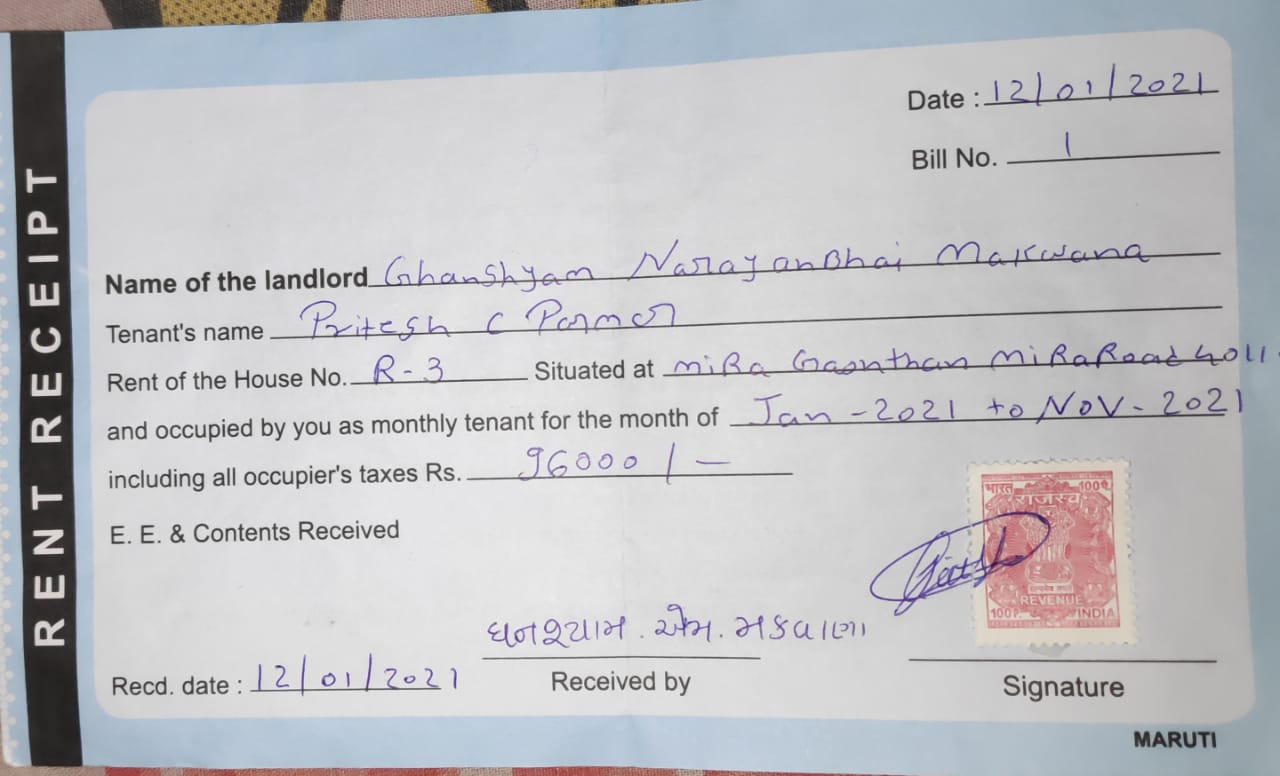 RENT RECEIPT
Date : 12/01/2021
Bill No. 1
Name of the landlord Ghanshyam NarayanBhai Makwana
Tenant's name Pritesh C Parmar
Rent of the House No. R-3 Situated at MiRa Gaonthan MiRaRoad 4011
and occupied by you as monthly tenant for the month of Jan-2021 to NOV-2021
including all occupier's taxes Rs. 96000/-
E. E. & Contents Received
भारत 100प.
राजस्व
REVENUE
100P INDIA
ઘનશ્યામ. એમ. મકવાણા
Recd. date : 12/01/2021 Received by Signature
MARUTI